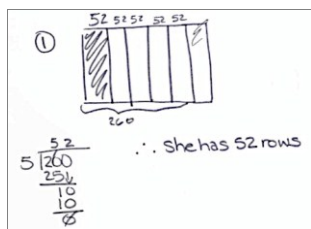 52 52 52 52 52
①
260
52
5 260
25↓
10
10
0
∴ she has 52 rows